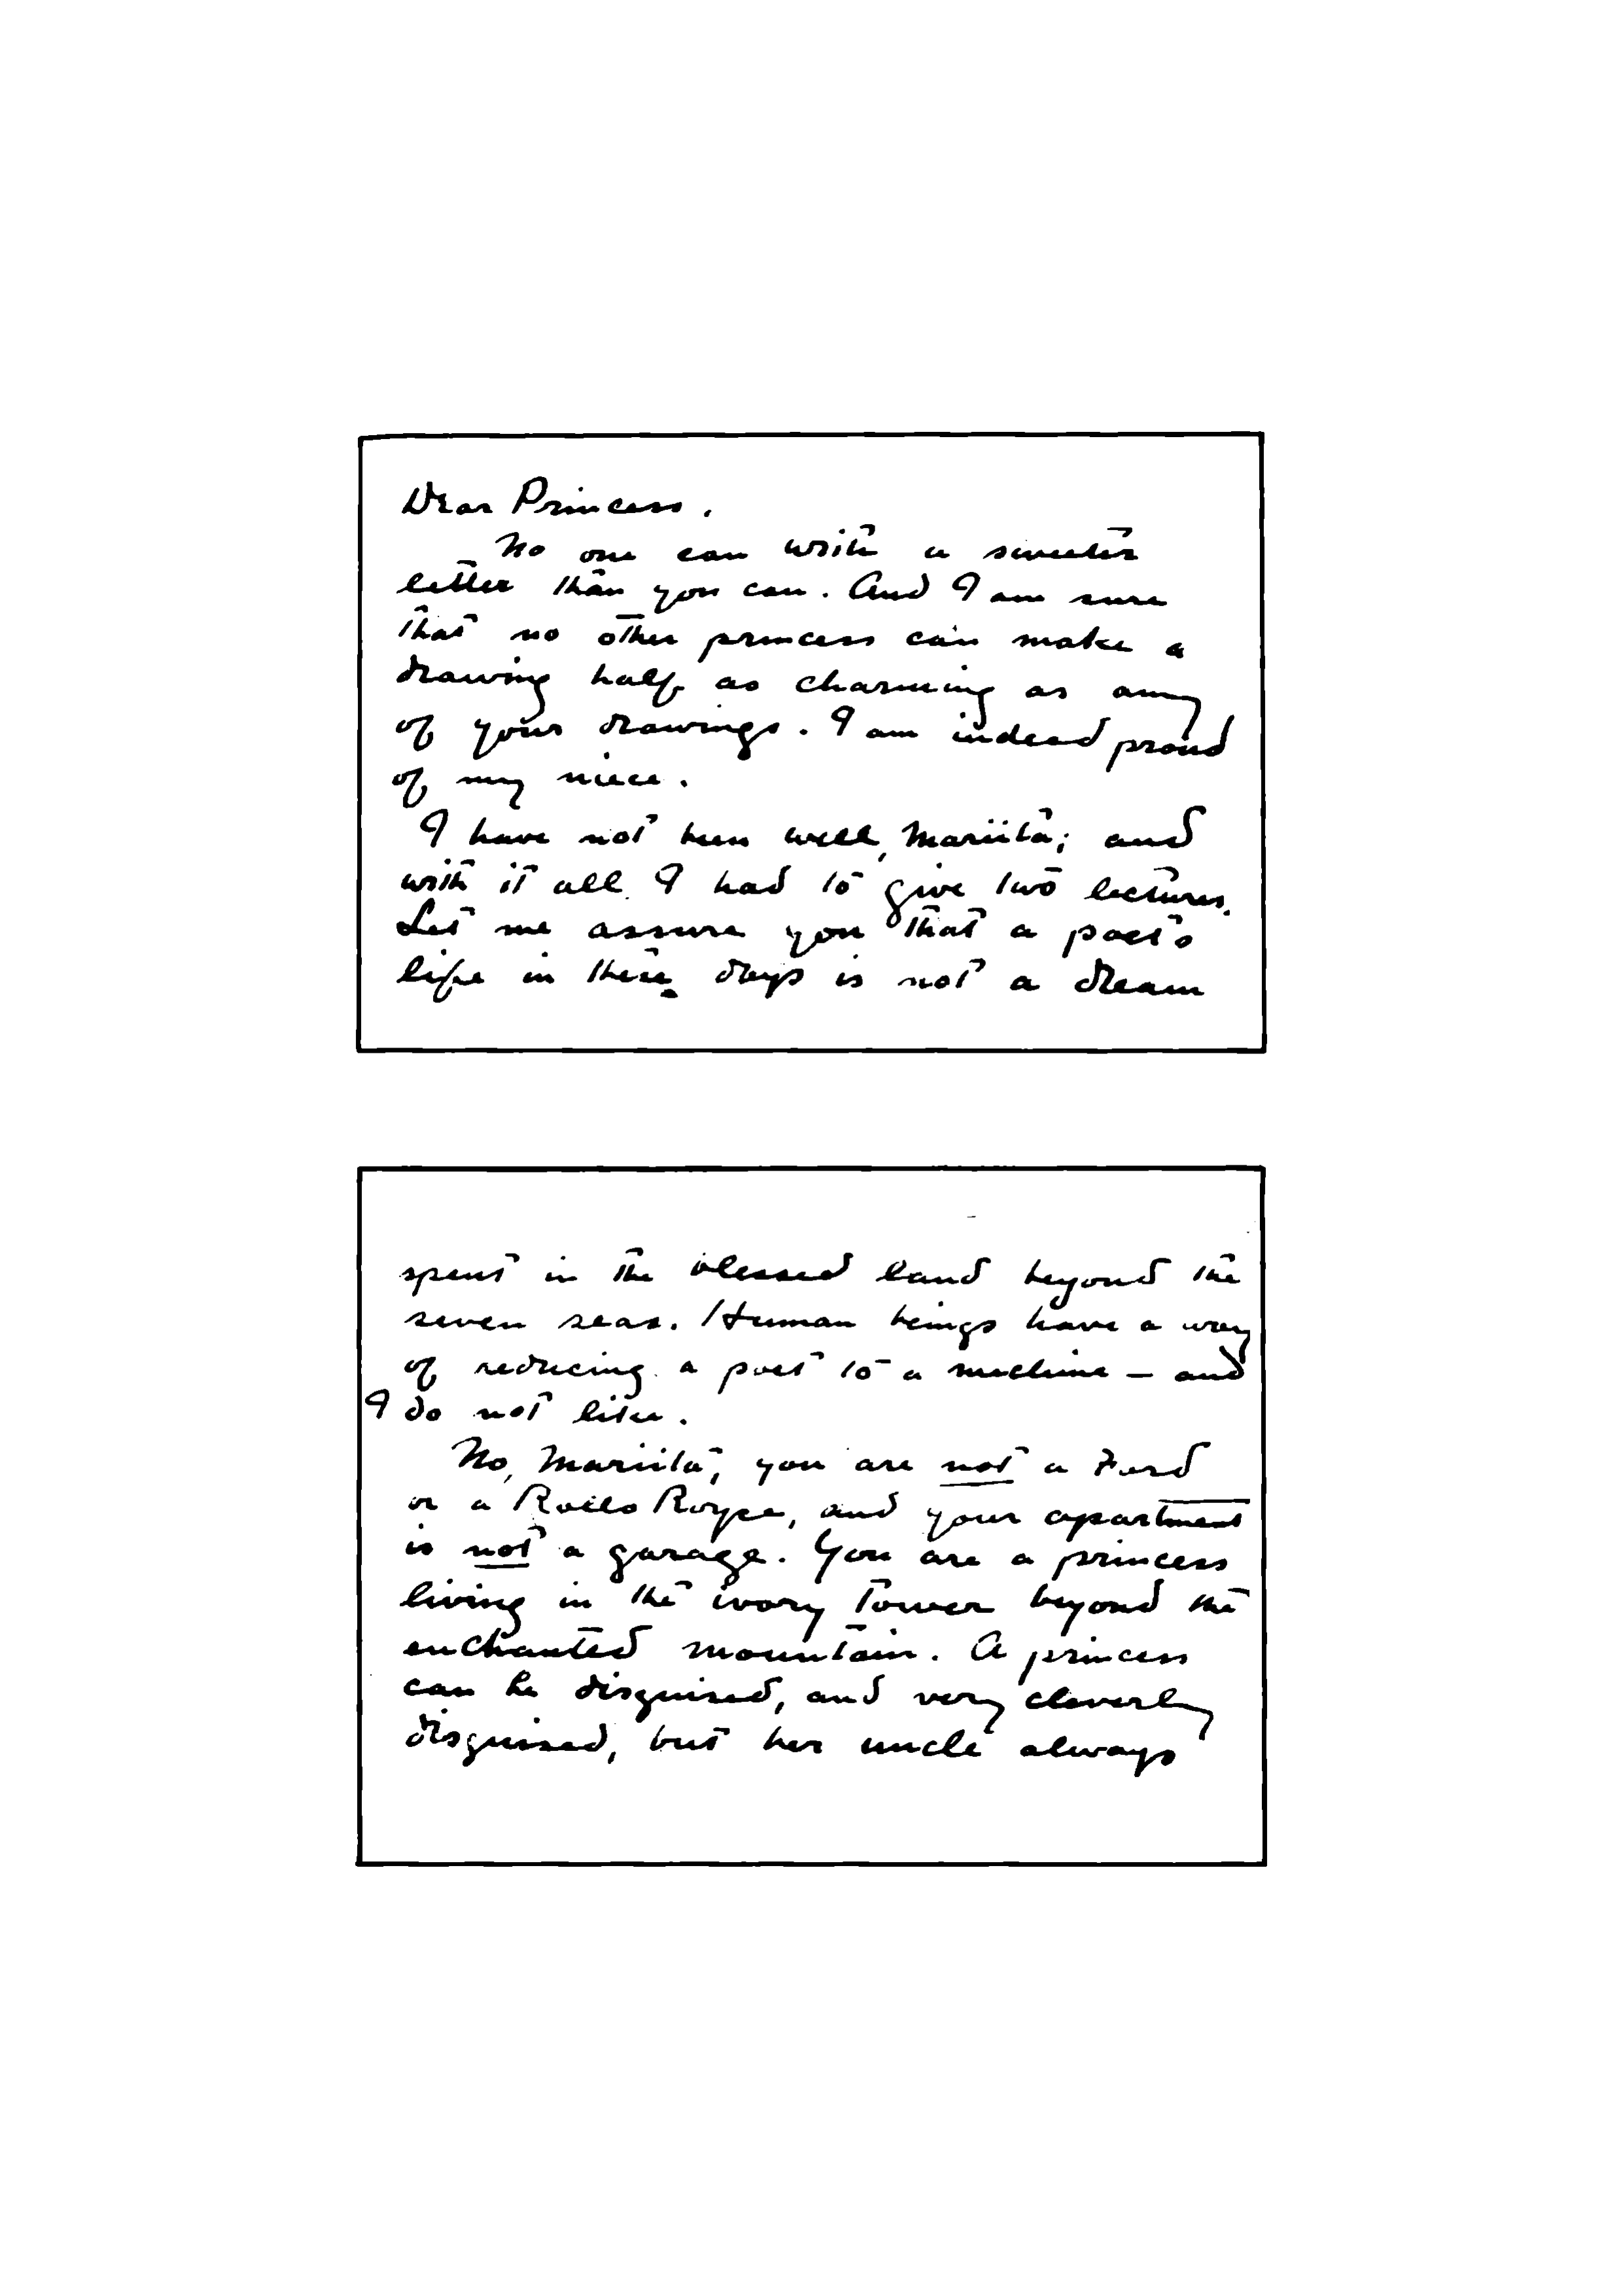 Dear Princess.
No one can write a sweeter
letter than you can. And I am sure
that no other princess can make a
drawing half as charming as any
of your drawings. I am indeed proud
of my niece.
I have not been well, Mariita; and
with it all I had to give two lectures.
Let me assure you that a poet's
life in these days is not a dream
spent in the blessed land beyond the
seven seas. Human beings have a way
of reducing a poet to a machine - and
I do not like.
No, Mariita, you are not a Ford
or a Rolls Royce, and your apartment
is not a garage. You are a princess
living in the ivory tower beyond the
enchanted mountain. A princess
can be disguised, and very cleverly
disguised, but her uncle always